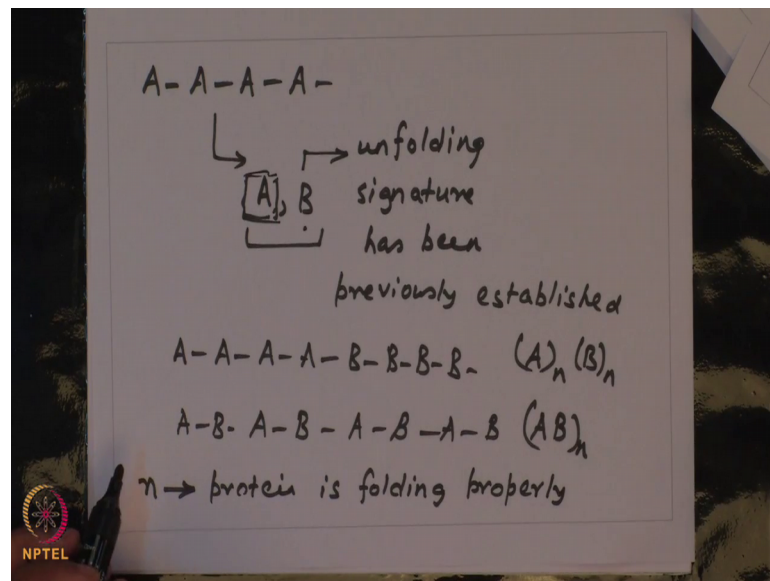 A - A - A - A -
A, B → unfolding
signature
has been
previously established
A - A - A - A - B - B - B - B - (A)n (B)n
A - B - A - B - A - B - A - B (AB)n
n → protein is folding properly
NPTEL